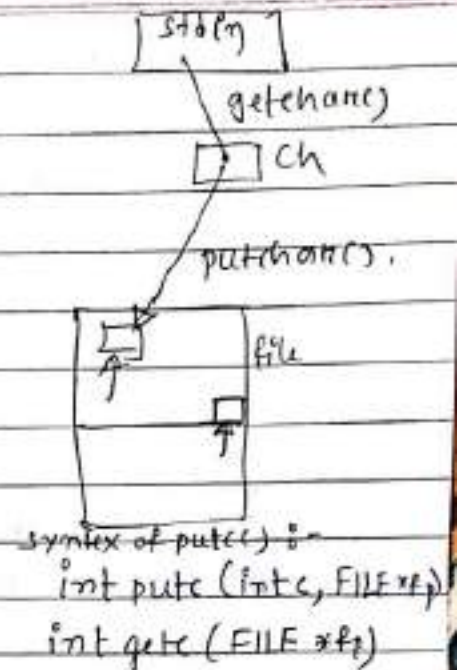 stdin
getchar()
Ch
putchar().
file
syntex of putc() :-
int putc (int c, FILE *fp)
int getc (FILE *fp)